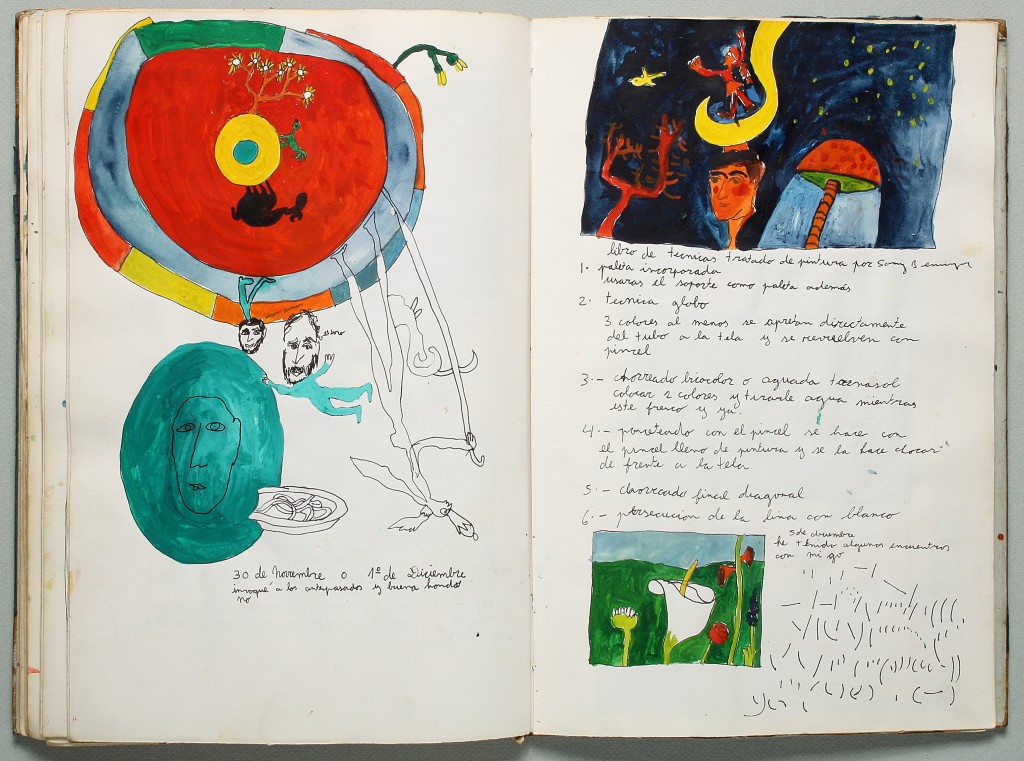 30 de Noviembre o 1º de Diciembre
invoqué a los antepasados y buena honda
no
libro de tecnicas tratado de pintura por
1. paleta incorporada
usaras el soporte como paleta además
2. tecnica globo
3 colores al menos se apretan directamente
del tubo a la tela y se revuelven con
pincel
3.- chorreado bicolor o aguada
colocar 2 colores y tirarle agua mientras
este fresco y ya.
4.- con el pincel se hace con
el pincel lleno de pintura y se la hace chocar
de frente a la tela
5.- chorreado final diagonal
6.- persecución de la linea con blanco
5 de diciembre
he tenido algunos encuentros
con mi yo